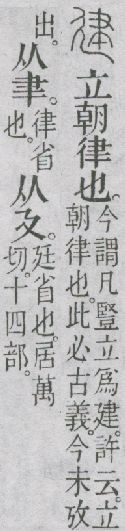 立朝律也。
今謂凡豎立爲建。許云。立
朝律也。此必古義。今未攷
出。
从聿。
律省
也。
从廴。
廷省也。居萬
切。十四部。